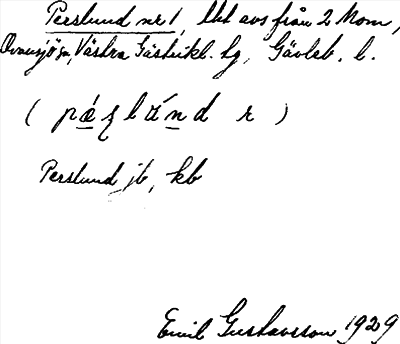 Perslund nr 1, lht avs från 2 Mom,
Ovansjö sn, Västra Gästrikl. hg, Gävleb. l.
( pæ̀ʂlúnd r )
Perslund jb, kb
Emil Gustavsson 1929